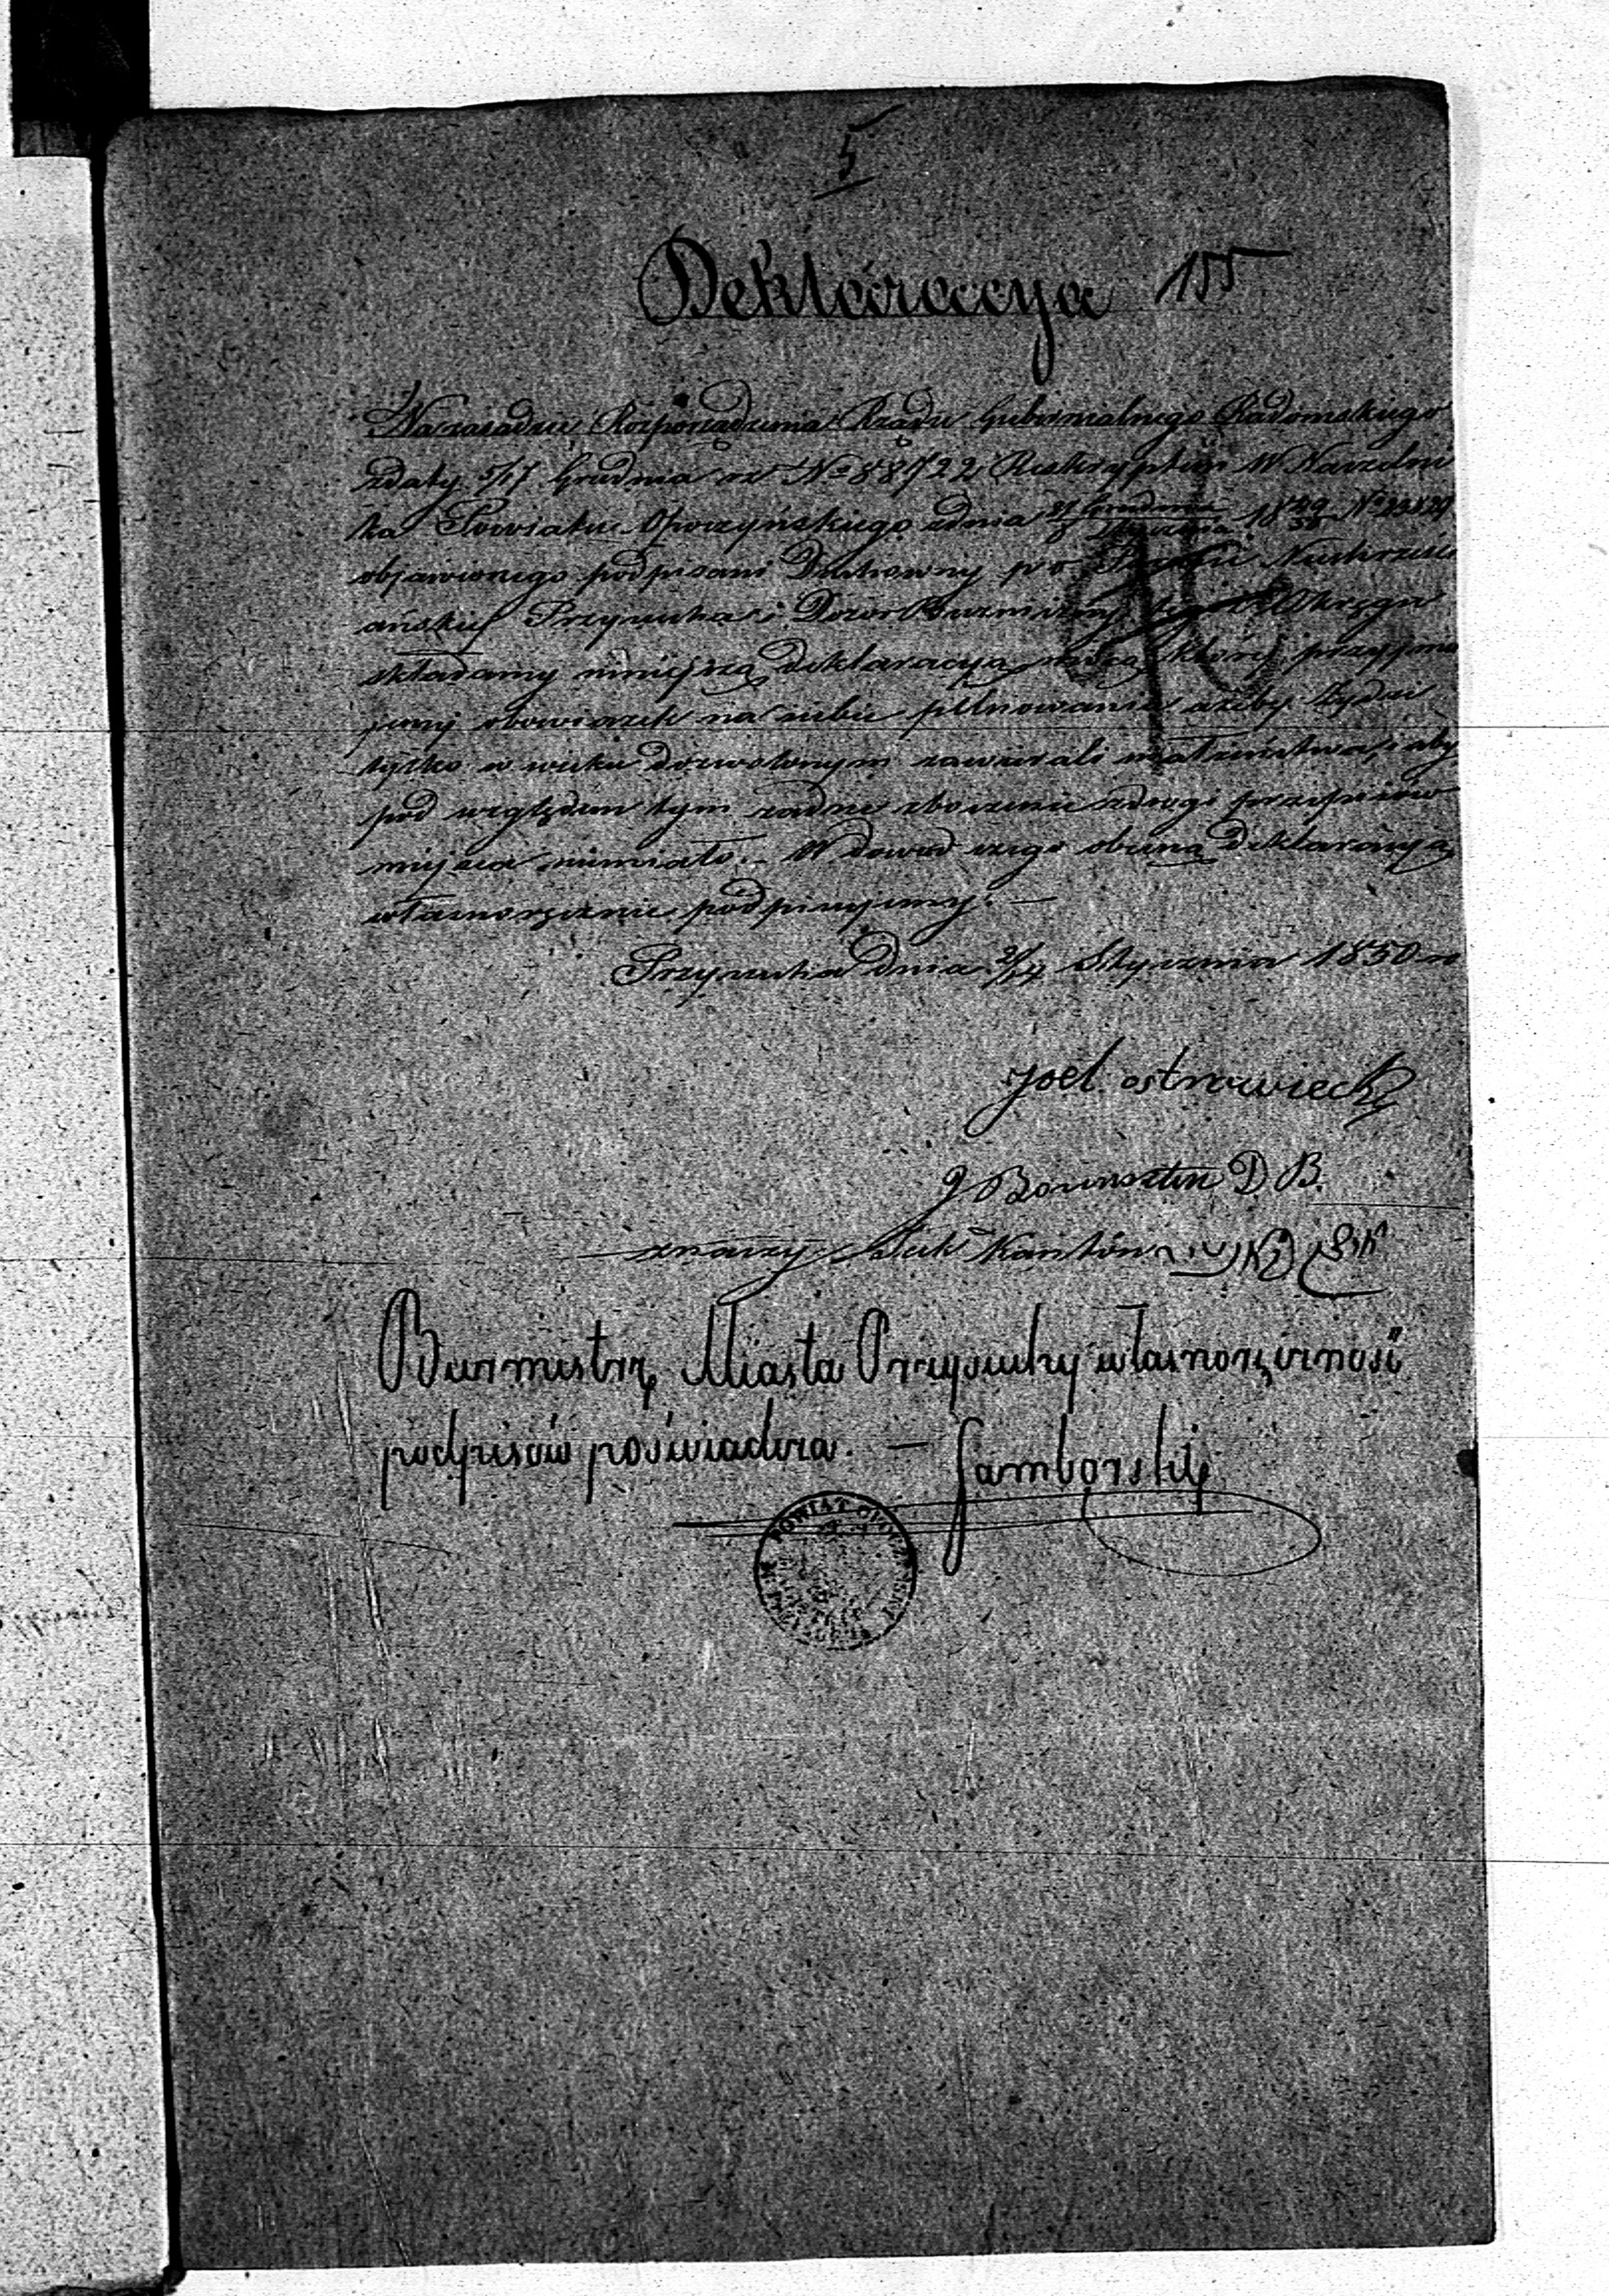 5
Deklaracya 155
Na zasadzie Rozporządzenia Rządu Gubernialnego Radomskiego
z daty 5/17 Grudnia rz No 88722 Reskryptem W. Naczelni
ka Powiatu Opoczyńskiego z dnia Grudnia Stycznia 18 49/50 No
objawionego podpisani Duchowny p o Religii Niechrześci
ańskiej Przysucha i Dozor Bużniczny tegoż Okręgu
składamy niniejszą deklaracyą mocą której przyjmu
jemy obowiązek na siebie pilnowania ażeby Żydzi
tylko w wieku dozwolonym zawierali małżeństwa, i aby
pod względem tym żadne zboczenie z drogi przepisów
miejsca niemiało. — W dowód czego obecną Deklaracyą
własnoręcznie podpisujemy. —
Przysucha dnia 2/14 Stycznia 1850 r
Joel ostrowiecki
J Bornsztein D B.
znaczy Kantôr
Burmistrz Miasta Przysuchy własnoręczność
podpisów poświadcza. — Gamborski
POWIAT OPOCZYŃSKI